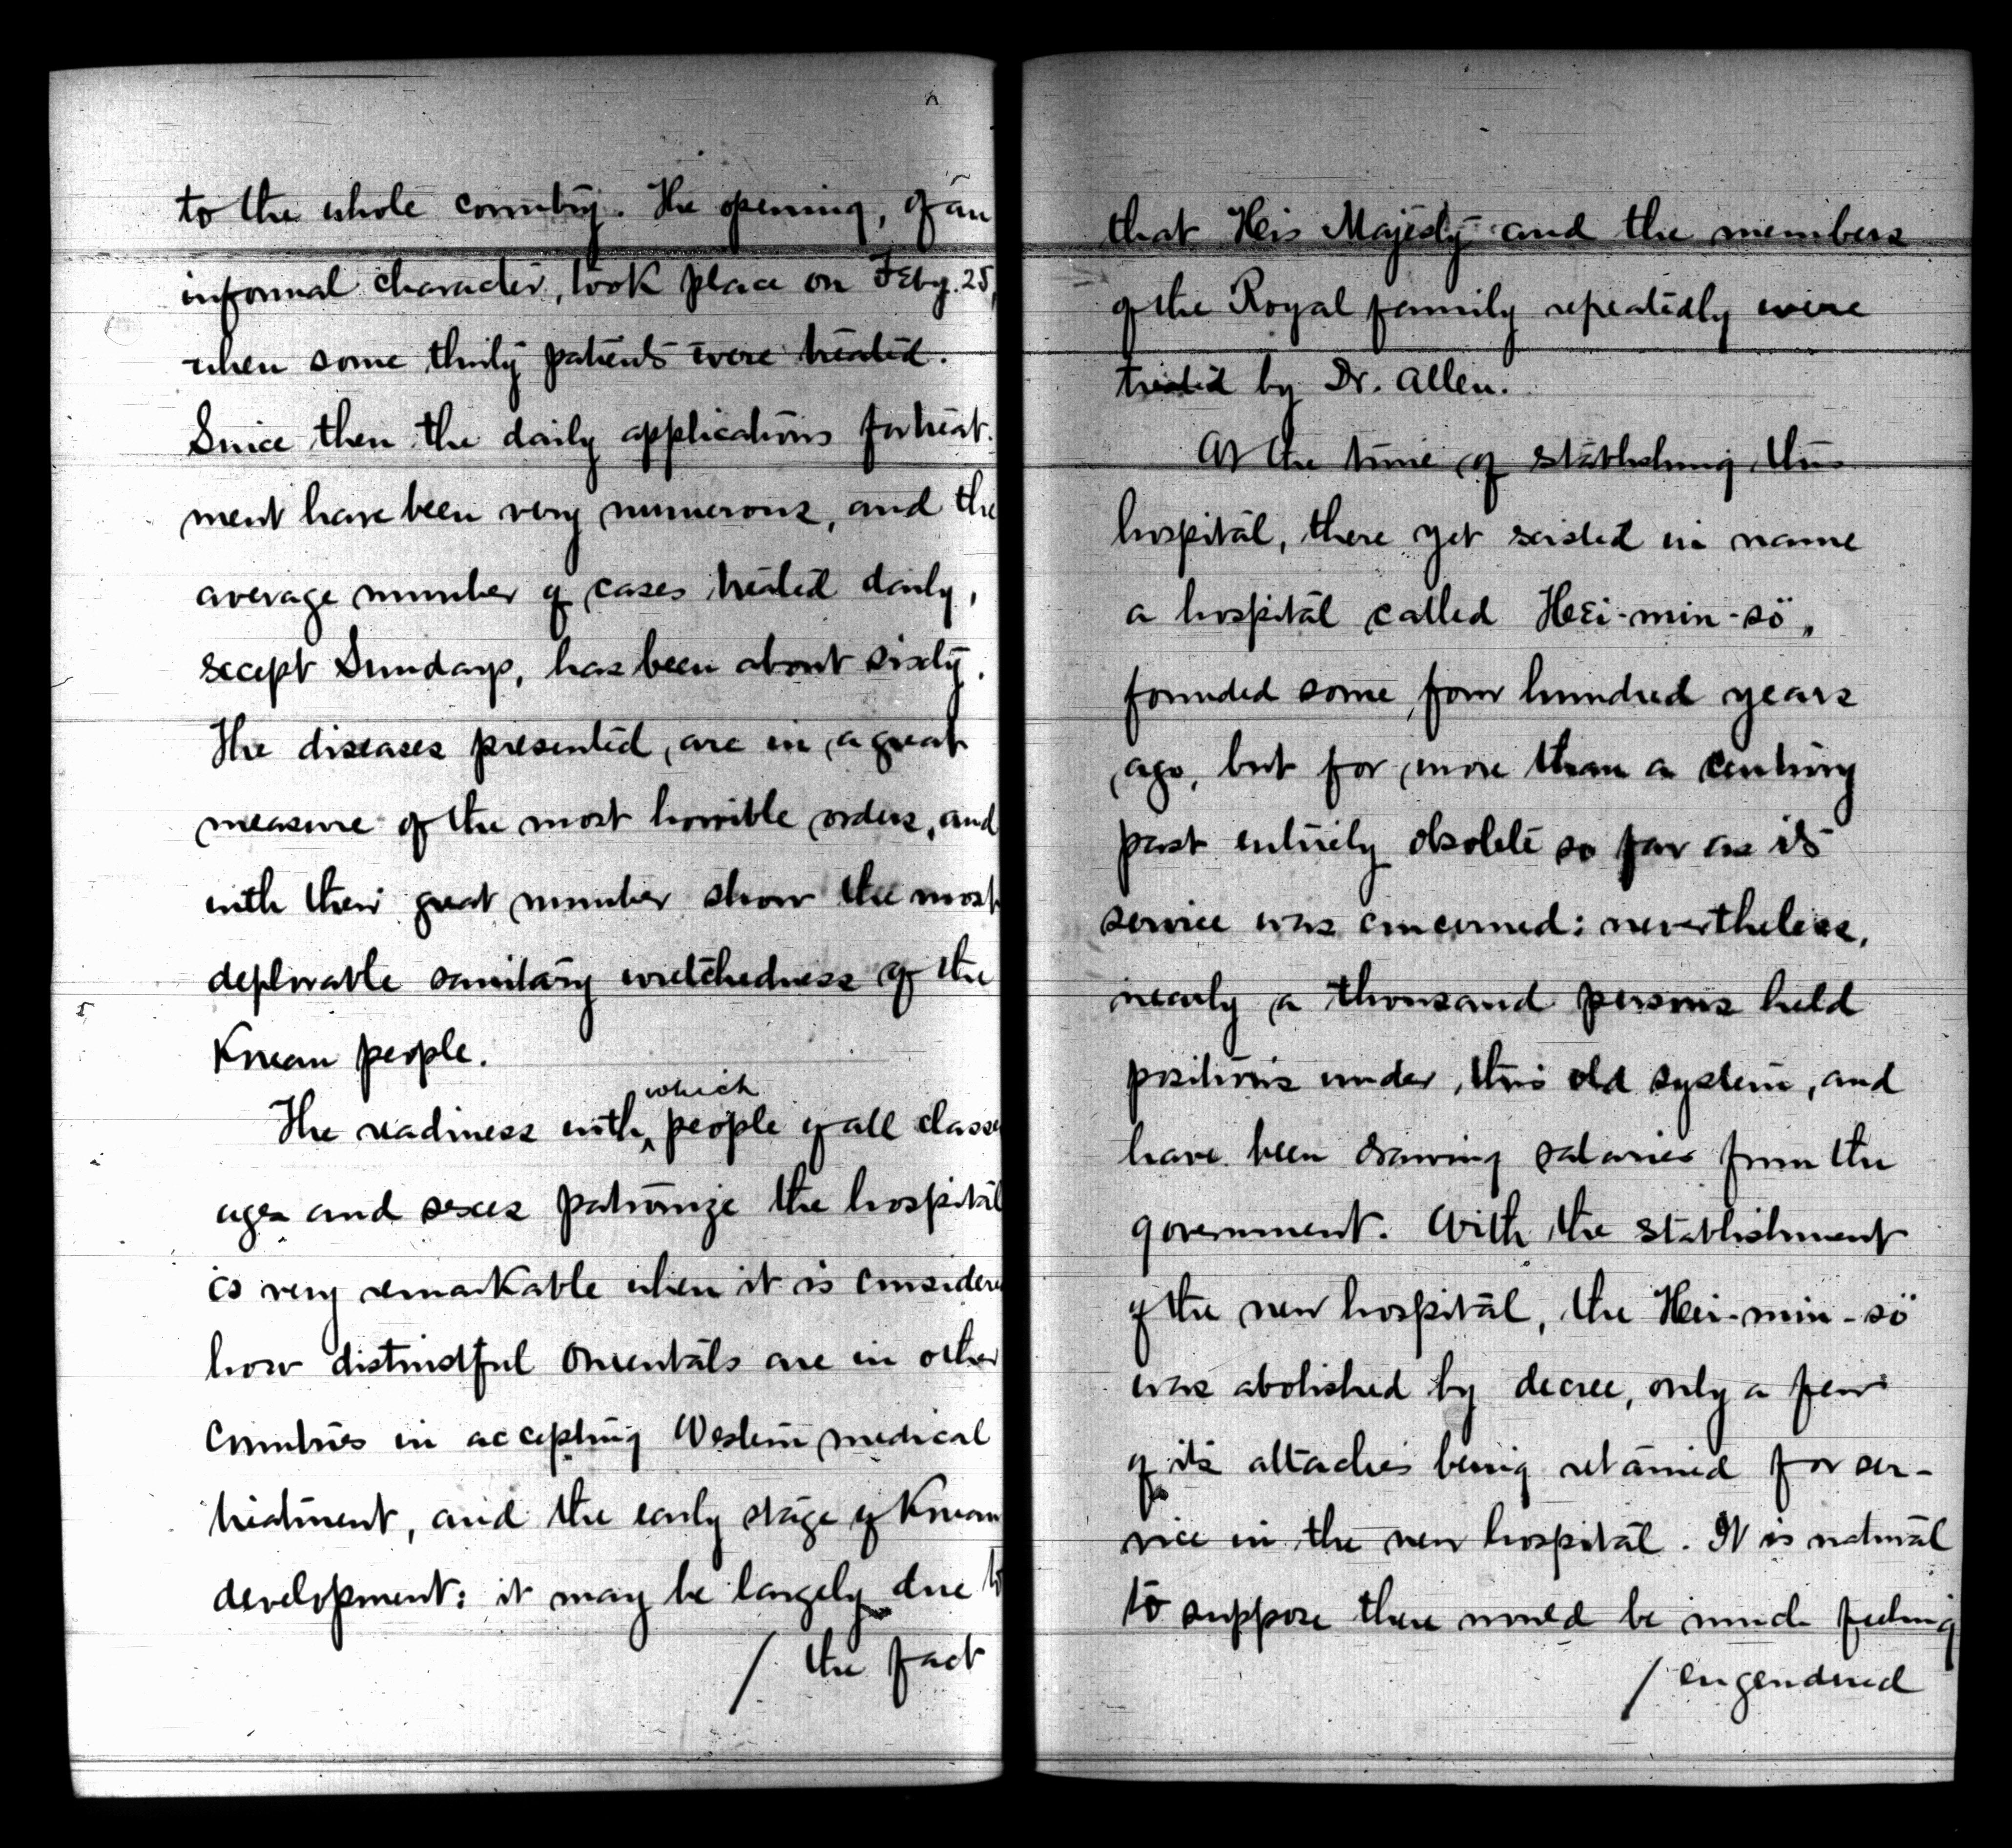 to the whole country. The opening, of an
informal character, took place on Feby. 25,
when some thirty patients were treated.
Since then the daily applications for treat-
ment have been very numerous, and the
average number of cases treated daily,
except Sundays, has been about sixty.
The diseases presented, are in a great
measure of the most horrible orders, and
with their great number show the most
deplorable sanitary wretchedness of the
Korean people.
The readiness with which people of all classe
ages and sexes patronize the hospital
is very remarkable when it is considere
how distrustful Orientals are in other
Countries in accepting Western medical
treatment, and the early stage of Korean
development: it may be largely due to
/ the fact
that His Majesty and the members
of the Royal family repeatedly were
treated by Dr. Allen.
At the time of establishing this
hospital, there yet existed in name
a hospital called Hei-min-sö,
founded some four hundred years
ago, but for more than a century
past entirely obsolete so far as its
service was concerned: nevertheless,
nearly a thousand persons held
positions under this old system, and
have been drawing salaries from the
government. With the establishment
of the new hospital, the Hei-min-sö
was abolished by decree, only a few
of its attachés being retained for ser-
vice in the new hospital. It is natural
to suppose there would be much feeling
/ engendered